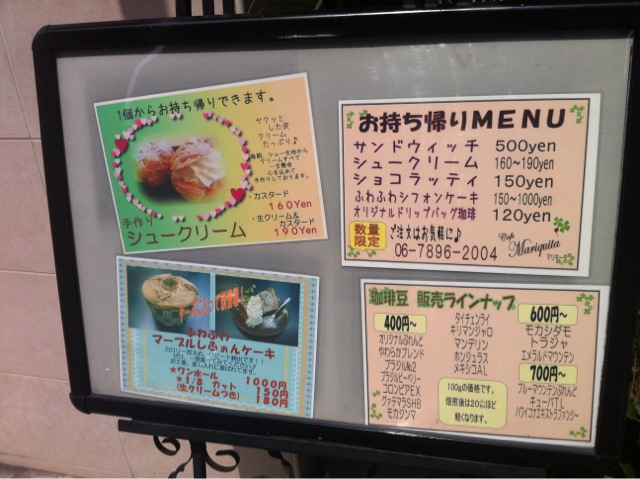 1個からお持ち帰りできます。
サクッと
した皮
クリーム
たっぷり♪
・カスタード
160Yen
・生クリーム&
カスタード
190Yen
手作り
シュークリーム
お持ち帰りMENU
サンドウィッチ 500yen
シュークリーム 160~190yen
ショコラッティ 150yen
ふわふわシフォンケーキ 150~1000yen
オリジナルドリップバッグ珈琲 120yen
数量
限定
ご注文はお気軽に♪
06-7896-2004
Cafe Mariquita
ふわふわ
マーブルしふぉんケーキ
★ワンホール 1000円
★1/8 カット 150円
(生クリームつき) 180円
珈琲豆 販売ラインナップ
400円~
オリジナルぶれんど
やわらかブレンド
ブラジル№2
ブラジルピーベリー
コロンビアEX
グァテマラSHB
モカシジマ
タイチェンライ
キリマンジャロ
マンデリン
ホンジュラス
メキシコAL
100gの価格です。
焙煎後は20㌫ほど
軽くなります。
600円~
モカシダモ
トラジャ
エメラルドマウンテン
700円~
ブルーマウンテンぶれんど
キューバTL
ハワイコナエキストラファンシー